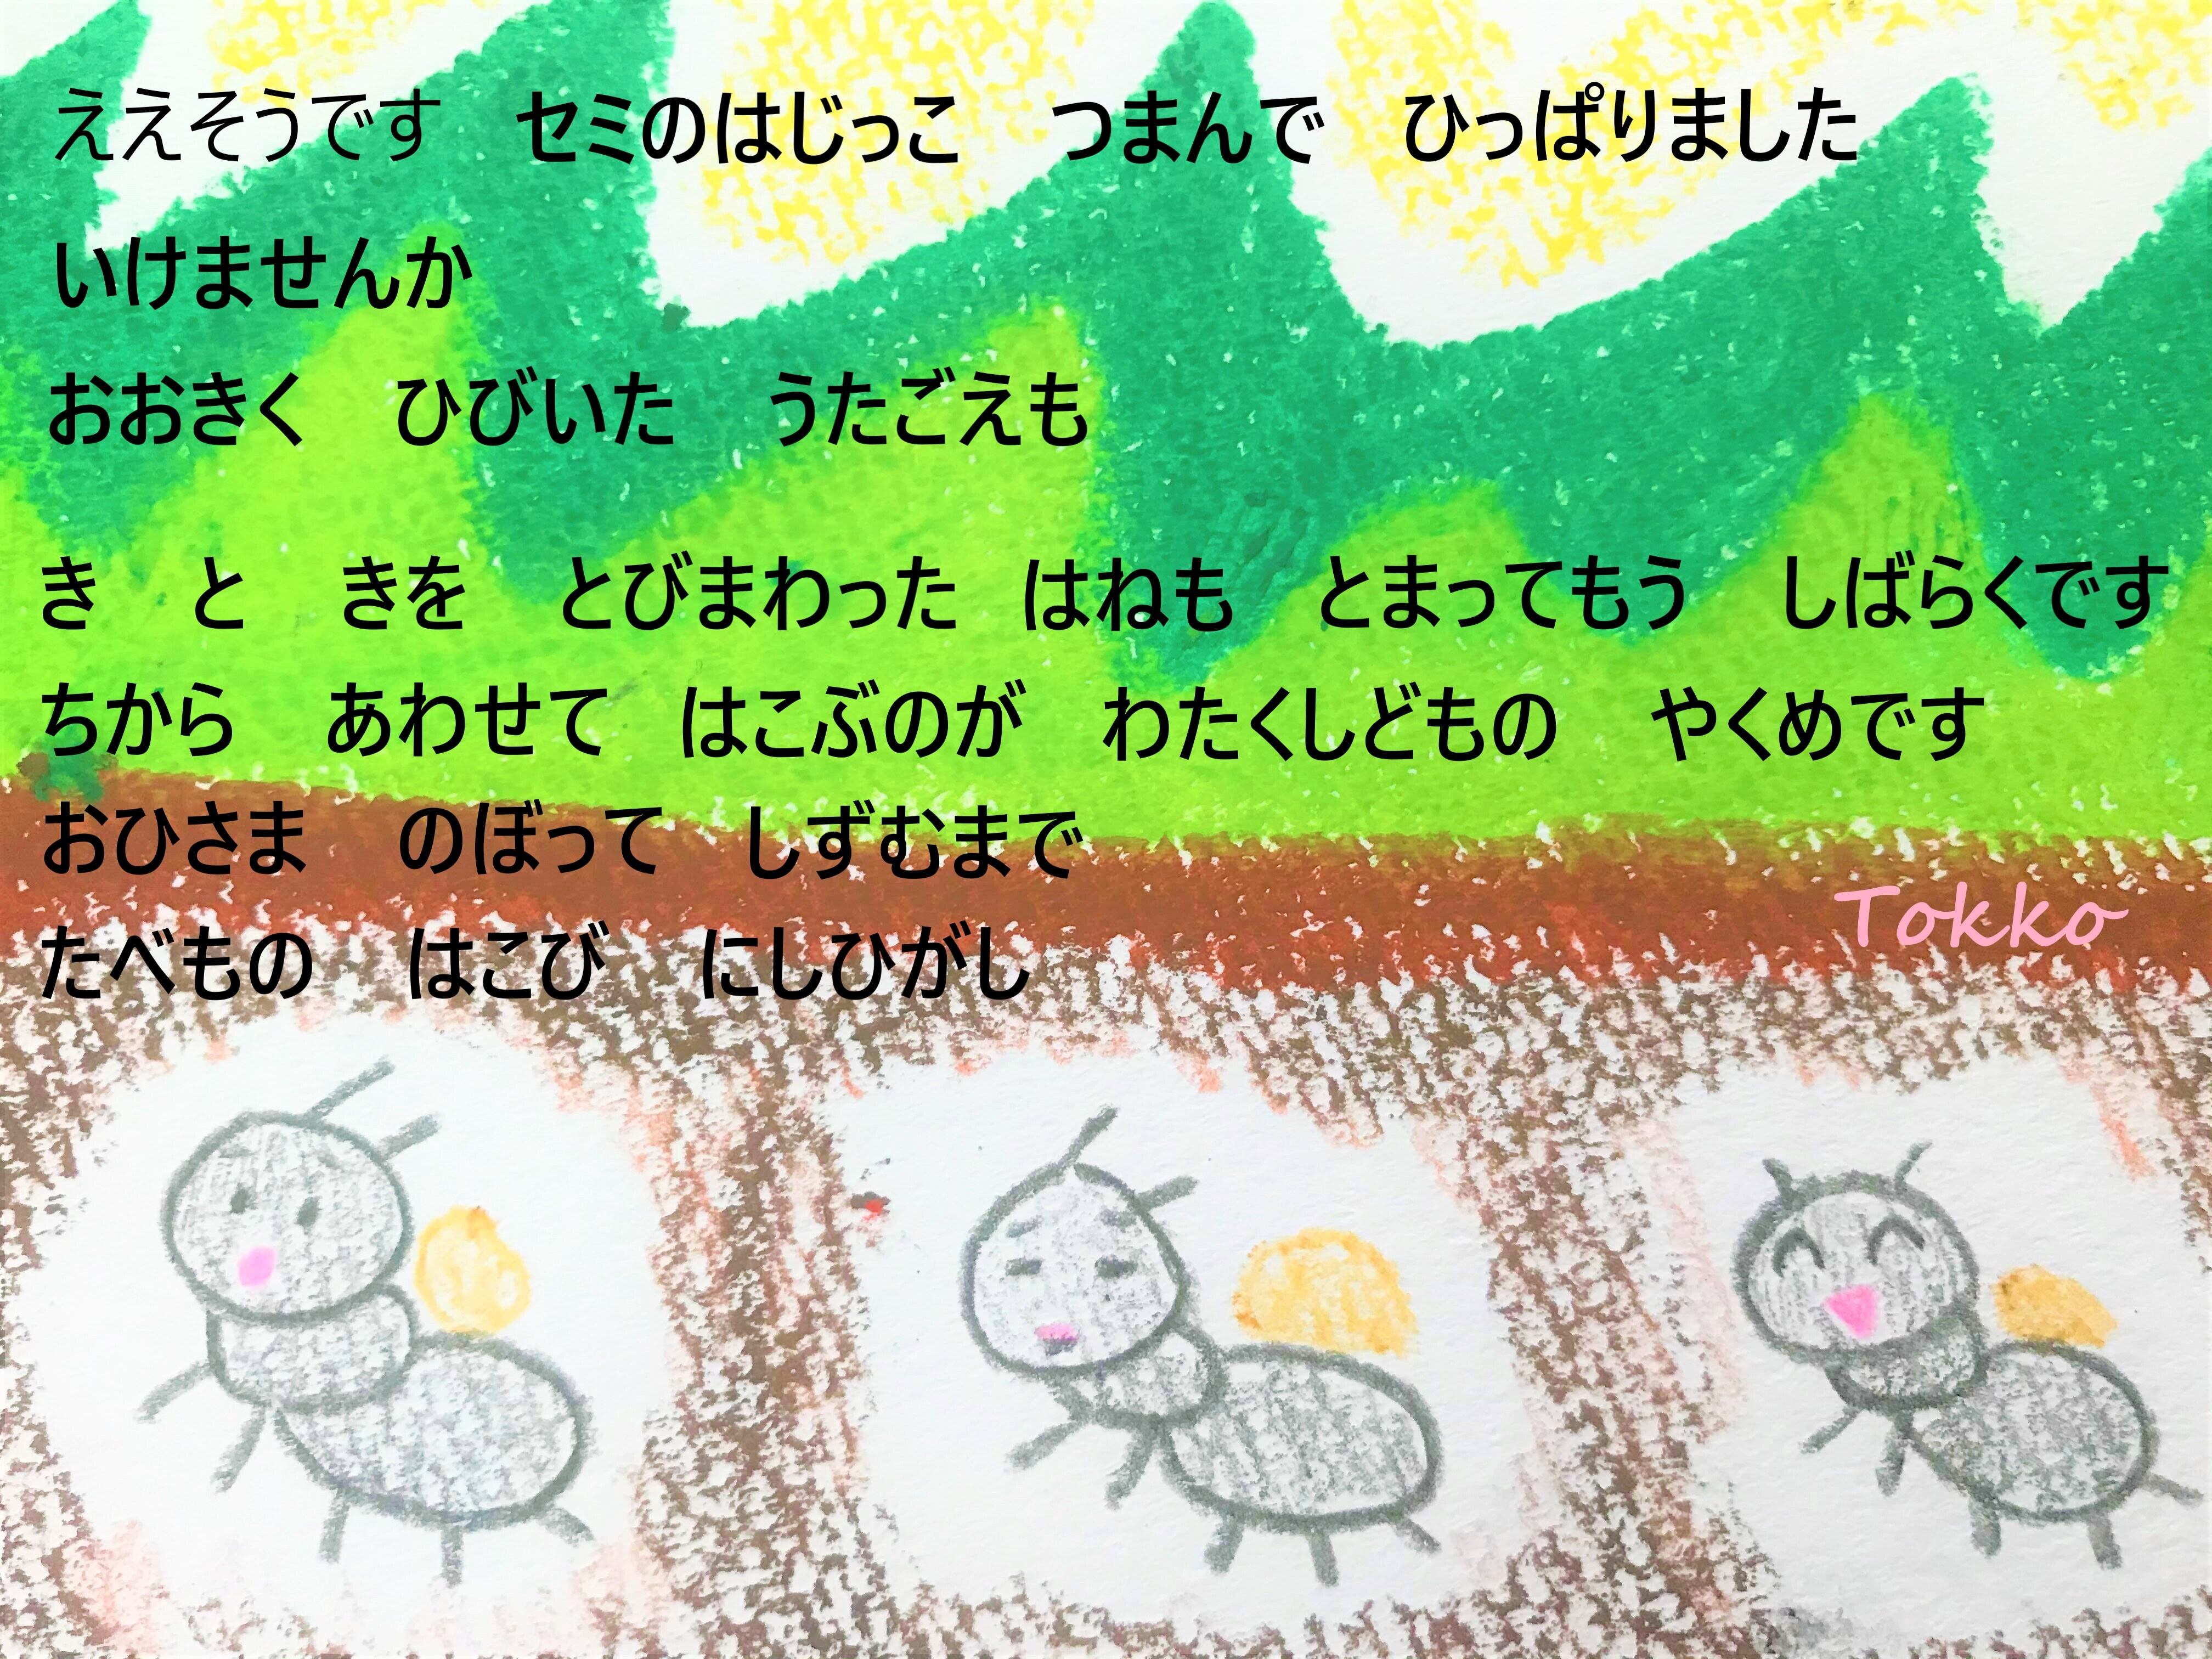 ええそうです　セミのはじっこ　つまんで　ひっぱりました
いけませんか
おおきく　ひびいた　うたごえも
き　と　きを　とびまわった　はねも　とまってもう　しばらくです
ちから　あわせて　はこぶのが　わたくしどもの　やくめです
おひさま　のぼって　しずむまで
たべもの　はこび　にしひがし
Tokko